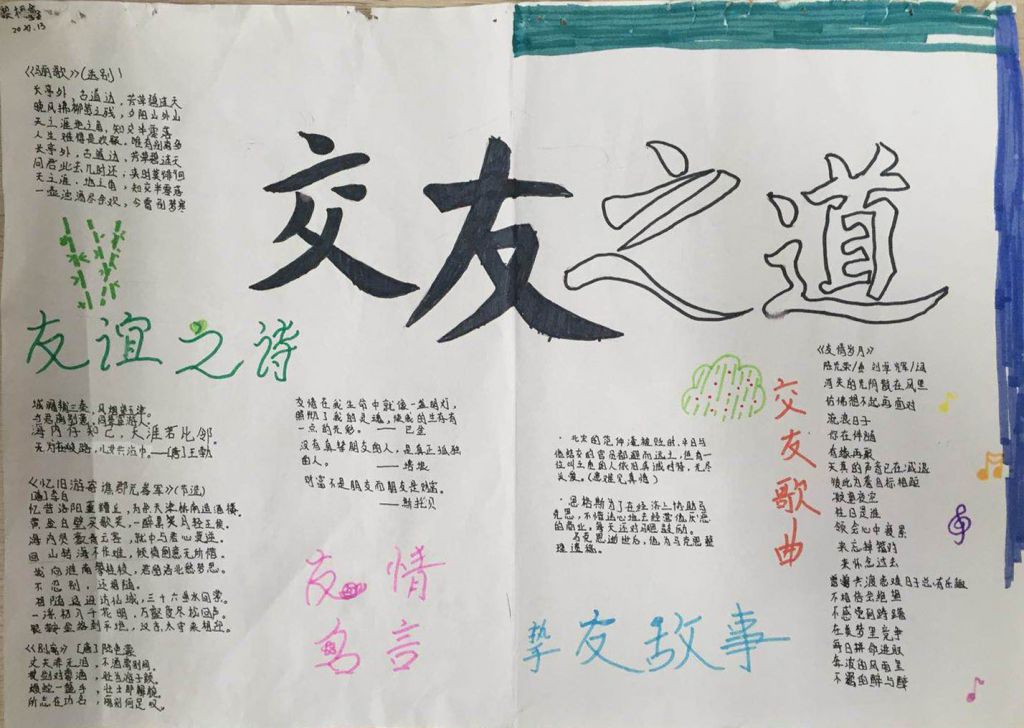 《骊歌》(送别)
长亭外，古道边，芳草碧连天
晚风拂柳笛声残，夕阳山外山
天之涯地之角，知交半零落
人生难得是欢聚，唯有别离多
长亭外，古道边，芳草碧连天
问君此去几时还，来时莫徘徊
天之涯，地之角，知交半零落
一壶浊酒尽余欢，今宵别梦寒
交友之道
友谊之诗
城阙辅三秦，风烟望五津。
与君离别意，同是宦游人。
海内存知己，天涯若比邻。
无为在歧路，儿女共沾巾。——[唐]王勃
《忆旧游寄谯郡元参军》(节选)
[唐]李白
忆昔洛阳董糟丘，为余天津桥南造酒楼。
黄金白璧买歌笑，一醉累月轻王侯。
海内贤豪青云客，就中与君心莫逆。
回山转海不作难，倾情倒意无所惜。
我向淮南攀桂枝，君留洛北愁梦思。
不忍别，还相随。
相随迢迢访仙城，三十六曲水回萦。
一溪初入千花明，万壑度尽松风声。
《别离》[唐]陆龟蒙
丈夫非无泪，不洒离别间。
杖剑对尊酒，耻为游子颜。
蝮蛇一螫手，壮士即解腕。
所志在功名，离别何足叹。
友情在我生命中就像一盏明灯，
照彻了我的灵魂，使我的生存有
一点的光彩。——巴金
没有真挚朋友的人，是真正孤独
的人。——培根
财富不是朋友而朋友是财富。
——斯托贝
友情
名言
·北宋的范仲淹被贬时，平日与
他结交的官员都避而远之，但有一
位叫王质的人依旧真诚对待，无尽
关爱。(患难见真情)
·恩格斯为了在经济上协助马
克思，不惜违心地去经营他厌恶
的商业，每天还对马恩鼓励
马克思逝世后，他为马克思整
理遗稿。
挚友故事
交友歌曲
《友情岁月》
消失的光阴散在风里
仿佛想不起再面对
流浪日子
你在伴随
有缘再聚
天真的声音已在减退
彼此为着目标相距
凝望夜空
往日是谁
领会心中疲累
来忘掉错对
来怀念过去
曾共渡患难日子总有乐趣
不相信会绝望
不感觉到踌躇
在美梦里竞争
每日拼命进取
奔波的风雨里
不羁的醒与醉